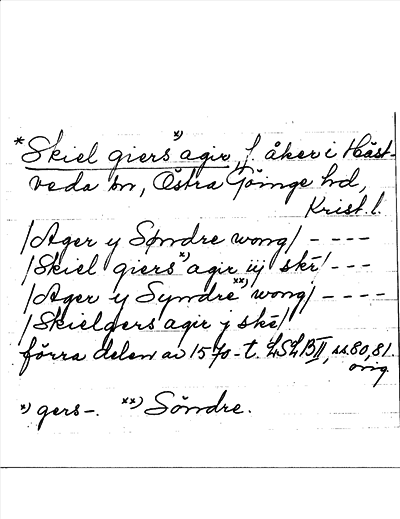 *Skiel giers *) agir, f. åker i Häst-
veda sn, Östra Göinge hd,
Krist. l.
/Ager y Søndre wong/ - - - -
/Skiel giers *) agir iij skē/ - - -
/Ager y Syndre **) wong/ - - - -
/Skielgers agir j skē/
förra delen av 1570-t. LSLB II, ss. 80, 81.
orig.
*) gers-. **) Söndre.